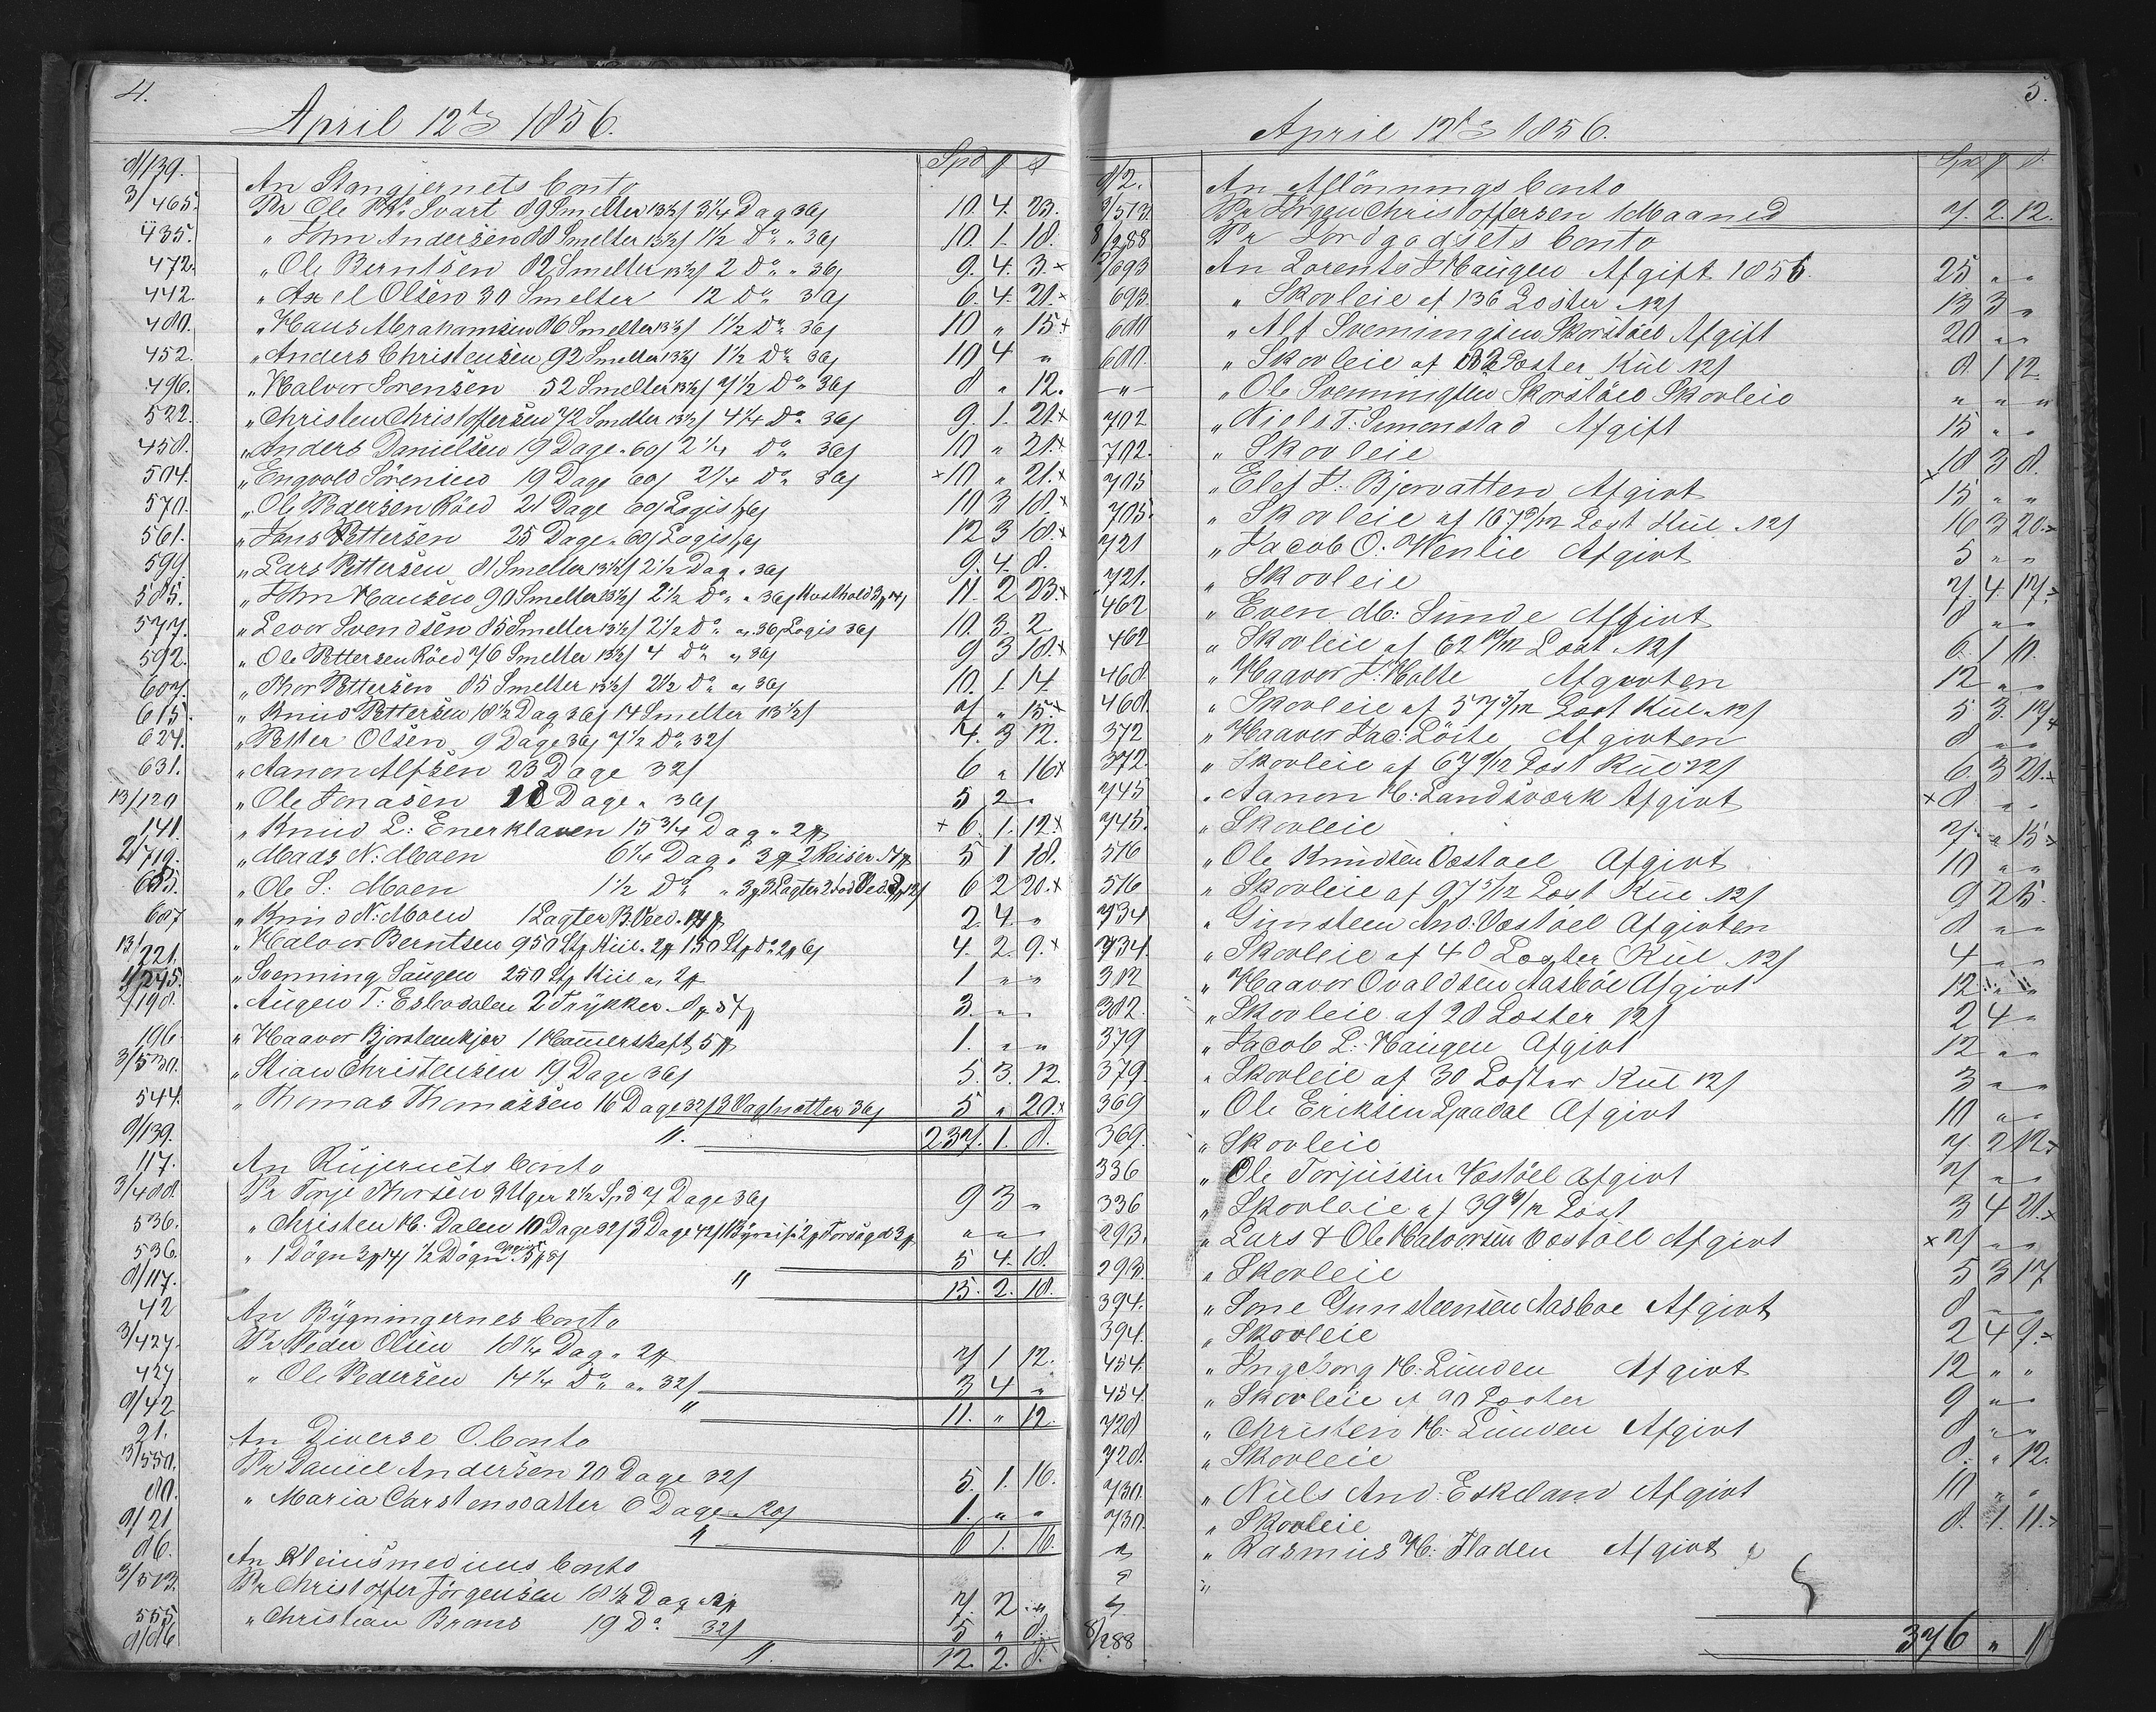 4.
April 12te 1856.
Spd
8/139. An Stangjernets Conto
3/465. Pr Ole Svart 89 Smelter 13½ß 3¼ Dag 36ß 10. 4. 23.
435. " John Andersen 88 Smelter 13½ß 1½ Do " 36ß 10. 1. 18.
472. " Ole Berntsen 82 Smelter 13½ß 2 Do " 36ß 9. 4. 3.
442. " Axel Olsen 30 Smelter 12 Do 36ß 6. 4. 21.
480. " Hans Abrahamsen 86 Smelter 13½ß 1½ Do 36ß 10 " 15 x
452. " Anders Christensen 92 Smelter 13½ß 1½ Do 36ß 10 4 "
496. " Halvor Sørensen 52 Smelter 13½ß 7½ Do 36ß 8 " 12.
522. " Christen Christoffersen 72 Smelter 13½ß 4¼ Do 36ß 9. 1. 21 x
458. " Anders Danielsen 19 Dage 60ß 2¼ Do 36ß 10 " 21 x
504. " Engvold Sörensen 19 Dage 60ß 2¼ Do 36ß x 10 " 21 x
570. " Ole Pedersen Röed 21 Dage 60ß Logis 10 3 18. x
561. " Jens Pettersen 25 Dage 60ß Logis 12 3 18. x
599 " Lars Pettersen 81 Smelter 13½ß 2½ Dag 36ß 9. 4. 8.
585. " John Hansen 90 Smelter 13½ß 2½ Do " 36ß Kosthold 11. 2 23. x
577. " Levor Svendsen 85 Smelter 13½ß 2½ Do a 36 Logis 36ß 10. 3. 2
592. " Ole Pettersen Röed 76 Smelter 13½ß 4 Do a 36ß 9 3 18. x
607. " Thor Pettersen 85 Smelter 13½ß 2½ Do a 36ß 10. 1. 14.
615. " Knud Pettersen 18½ Dag 36ß 14 Smelter 13½ß 7 " 15. x
624. " Petter Olsen 9 Dage 36ß 7½ Do 32ß 4. 3 12.
631. " Aanon Alfsen 23 Dage 32ß 6 " 16 x
13/120 " Ole Jonasen 18 Dage " 36ß 5 2 "
141. " Knud L: Enerklaven 15¾ Dag " 2 x 6. 1. 12 x
2/719. " Mads N: Moen 6¼ Dag 3 2 Reiser 5 1 18.
655. " Ole S: Moen 1½ Do 6 2 20. x
687 " Knud N: Moen 1 Lagter B. Ved. 2. 4. "
13/221. " Halvor Berntsen 950 Kül 2 150 Do 4. 2. 9. x
" Svenning Saugen 250 Kül a 2 1 " "
2/198. " Augen T: Eskedalen 2 Trykker 3. " "
196 " Haavor Bjorstenkjær 1 Hammerskaft 5 1. " "
3/530. " Stian Christensen 19 Dage 36ß 5. 3. 12.
544. " Thomas Thomassen 16 Dage 32ß 3 Vagtnætter 36ß 5 " 20. x
8/139. " 237. 1. 8.
117. An Rujernets Conto
3/488 Pr Torje Thorsen 3 Uger 2½ Spd 7 Dage 36ß 9 3 "
536. " Christen H. Dalen 10 Dage 32ß 3 Dage 42ß " " "
536. " 1 Dögn ½ Dögn 5 4. 18.
8/117. " 15. 2. 18.
42 An Bygningernes Conto
3/427. Pr Peder Olsen 18¼ Dag " 2 7 1 12.
427 " Ole Pedersen 14¼ Do a 32ß 3 4 "
8/42 " 11. " 12.
21. An Diverse O. Conto
13/550. Pr Daniel Andersen 20 Dage 32ß 5. 1. 16.
80. " Maria Carstensdatter 6 Dage 20ß 1. " "
8/21 " 6 1. 16.
86. An Kleinsmediens Conto
3/513. Pr Christoffer Jörgensen 18½ Dag 2 7. 2 "
555. " Christian Brams 19 Do 32ß 5 " 8.
8/86 " 12. 2. 8.
5.
April 12te 1856.
Spd
8/2. An Aflönnings Conto
3/513. Pr Jörgen Christoffersen 1 Maaned 7. 2. 12.
8/288 Pr Jordgodsets Conto
12/693 An Lorents J Haugen Afgift 1856. 25 " "
693. " Skovleie af 136 Læster 12ß 13 3 "
680 " Alf Svenningsen Skorstöel Afgift 20 " "
680. " Skovleie af 82 Læster Kül 12ß 8 1 12
—"— " Ole Svenningsen Skorstöel Skovleie " " "
702 " Niels T. Simonstad Afgift 15 " "
702. " Skovleie 18 3 8.
705 " Elef J: Bjorvatten Afgivt x 15 " "
705. " Skovleie af 167 9/12 Læst Kül 12ß 16 3 20.
721 " Jacob O: Wenlie Afgivt 5 " "
721. " Skovleie 7. 4 17.
462 " Even M: Sunde Afgivt 8 " "
462 " Skovleie af 62 10/12 Læst 12ß 6. 1 10.
468. " Haavor J: Holte Afgivten 12 " "
468 " Skovleie af 57 3/12 Læst Kül 12ß 5 3. 17
372 " Haavor Jac: Löite Afgivten 8 " "
372. " Skovleie af 67 9/12 Læst Kül 12ß 6. 3 21.
745 " Aanon H: Landsværk Afgivt x 8 " "
745. " Skovleie 7 " 15
516 " Ole Knudsen Væstöel Afgivt 10 " "
516 " Skovleie af 97 5/12 Læst Kül 12ß 9 2 5.
734 " Gunsteen And: Væstöel Afgivten 8 " "
734. " Skovleie af 40 Læster Kül 12ß 4 " "
382 " Haavor Ovaldsen Aasböe Afgivt 12 " "
382. " Skovleie af 28 Læster 12ß 2 4 "
379 " Jacob L: Haugen Afgivt 12 " "
379. " Skovleie af 30 Læster Kül 12ß 3 " "
369 " Ole Eriksen Ljaadal Afgivt 10 " "
369. " Skovleie 7 2 12
336 " Ole Torjussen Væstöel Afgivt 7 " "
336 " Skovleie af 39 9/12 Læst 3 4 21.
293. " Lars & Ole Halvorsen Væstöel Afgivt x 7 " "
293. " Skovleie 5 3 17
394. " Sone Gunsteensen Aasböe Afgivt 8 " "
394. " Skovleie 2 4 9.
454. " Ingeborg H: Lunden Afgivt 12 " "
454. " Skovleie af 90 Læster 9 " "
728 " Christen H: Lunden Afgivt 8 " "
728. " Skovleie 8. " 12.
730. " Niels And: Eskeland Afgivt 10 " "
730. " Skovleie 8. 1. 11.
" " Rasmus H: Fladen Afgivt
"
8/288 376 " 11